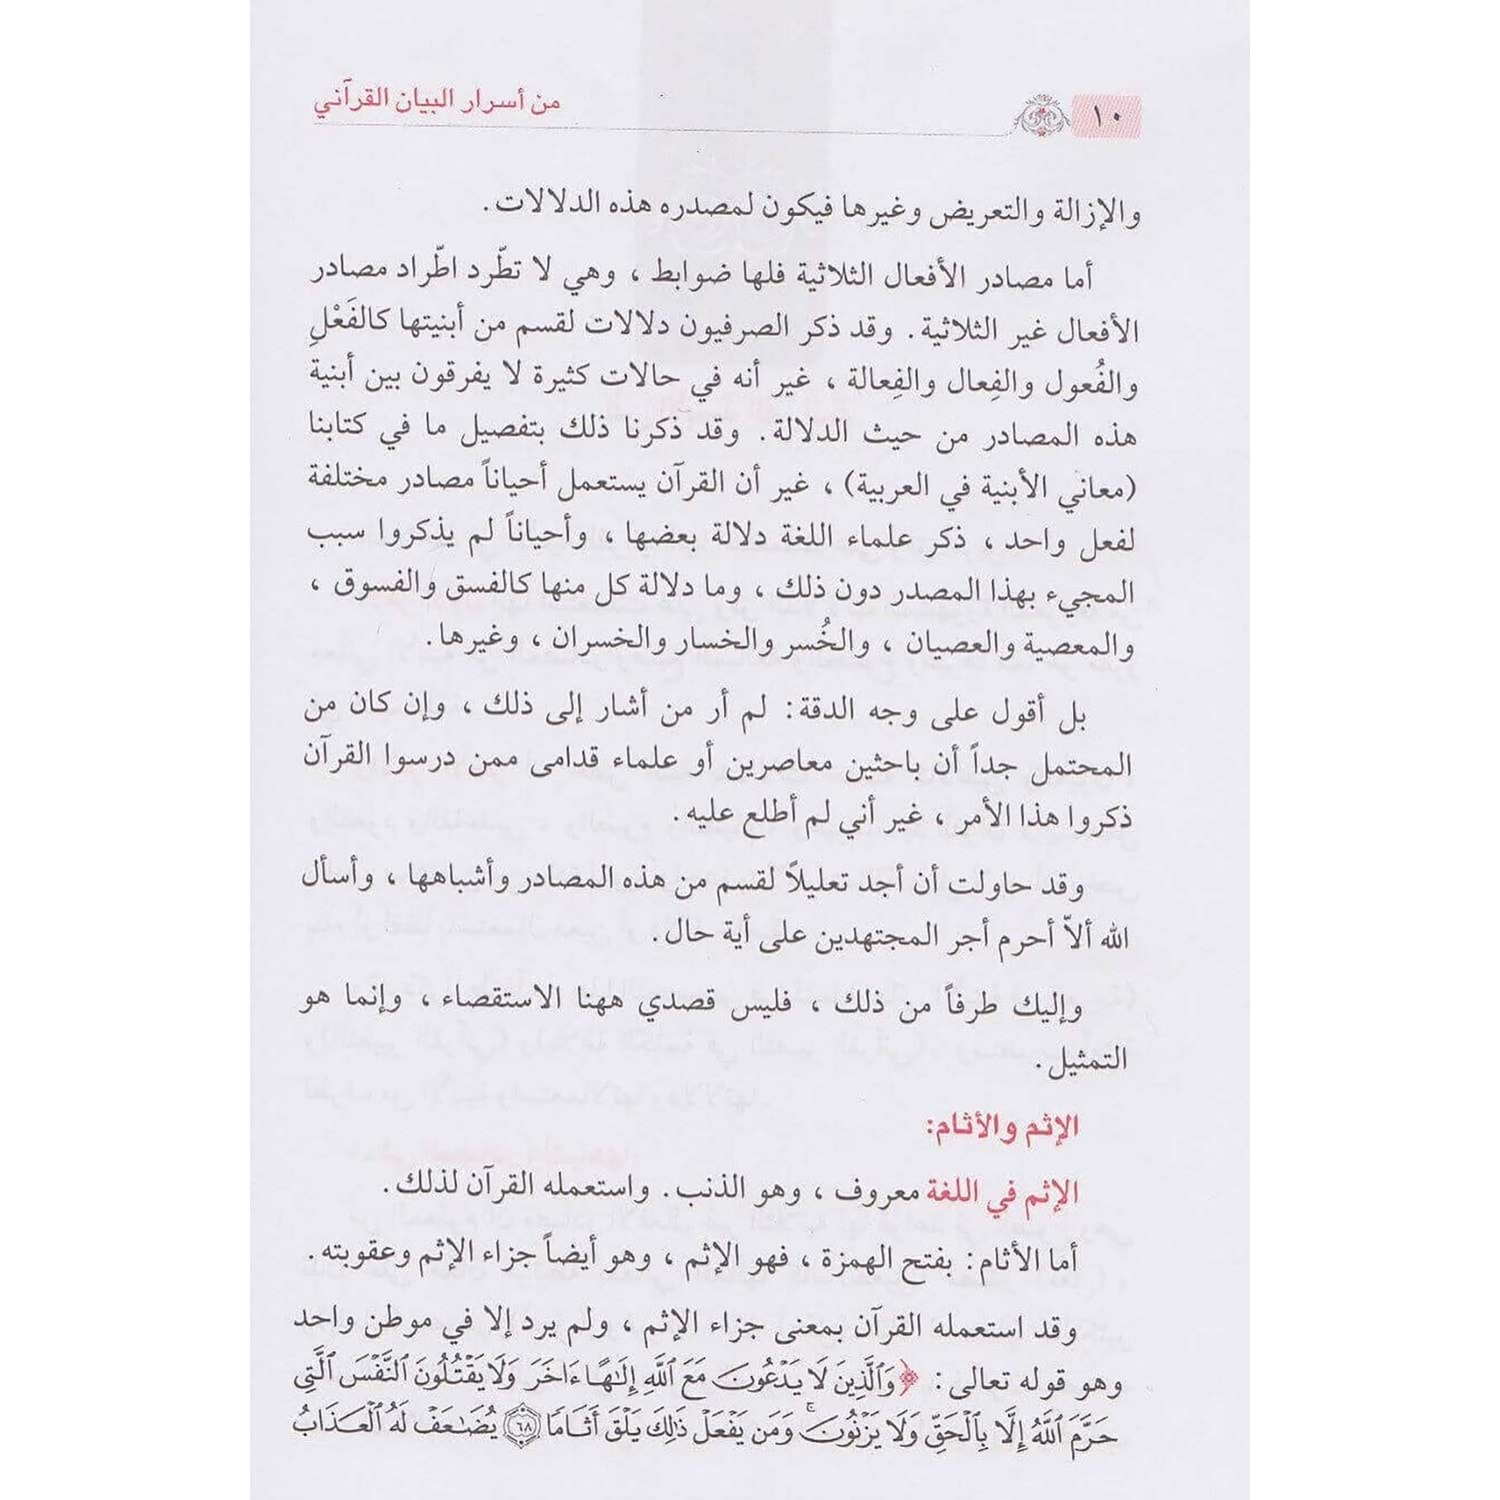 ١٠
من أسرار البيان القرآني
والإزالة والتعريض وغيرها فيكون لمصدره هذه الدلالات.
أما مصادر الأفعال الثلاثية فلها ضوابط ، وهي لا تطّرد اطّراد مصادر
الأفعال غير الثلاثية. وقد ذكر الصرفيون دلالات لقسم من أبنيتها كالفَعْلِ
والفُعول والفِعال والفِعالة ، غير أنه في حالات كثيرة لا يفرقون بين أبنية
هذه المصادر من حيث الدلالة. وقد ذكرنا ذلك بتفصيل ما في كتابنا
(معاني الأبنية في العربية) ، غير أن القرآن يستعمل أحياناً مصادر مختلفة
لفعل واحد ، ذكر علماء اللغة دلالة بعضها ، وأحياناً لم يذكروا سبب
المجيء بهذا المصدر دون ذلك ، وما دلالة كل منها كالفسق والفسوق ،
والمعصية والعصيان ، والخُسر والخسار والخسران ، وغيرها.
بل أقول على وجه الدقة: لم أر من أشار إلى ذلك ، وإن كان من
المحتمل جداً أن باحثين معاصرين أو علماء قدامى ممن درسوا القرآن
ذكروا هذا الأمر ، غير أني لم أطلع عليه.
وقد حاولت أن أجد تعليلاً لقسم من هذه المصادر وأشباهها ، وأسأل
الله ألاّ أحرم أجر المجتهدين على أية حال.
وإليك طرفاً من ذلك ، فليس قصدي ههنا الاستقصاء ، وإنما هو
التمثيل.
الإثم والأثام:
الإثم في اللغة معروف ، وهو الذنب. واستعمله القرآن لذلك.
أما الأثام: بفتح الهمزة ، فهو الإثم ، وهو أيضاً جزاء الإثم وعقوبته.
وقد استعمله القرآن بمعنى جزاء الإثم ، ولم يرد إلا في موطن واحد
وهو قوله تعالى: ﴿وَٱلَّذِينَ لَا يَدْعُونَ مَعَ ٱللَّهِ إِلَٰهًا ءَاخَرَ وَلَا يَقْتُلُونَ ٱلنَّفْسَ ٱلَّتِى
حَرَّمَ ٱللَّهُ إِلَّا بِٱلْحَقِّ وَلَا يَزْنُونَ ۚ وَمَن يَفْعَلْ ذَٰلِكَ يَلْقَ أَثَامًا ۝٦٨ يُضَٰعَفْ لَهُ ٱلْعَذَابُ